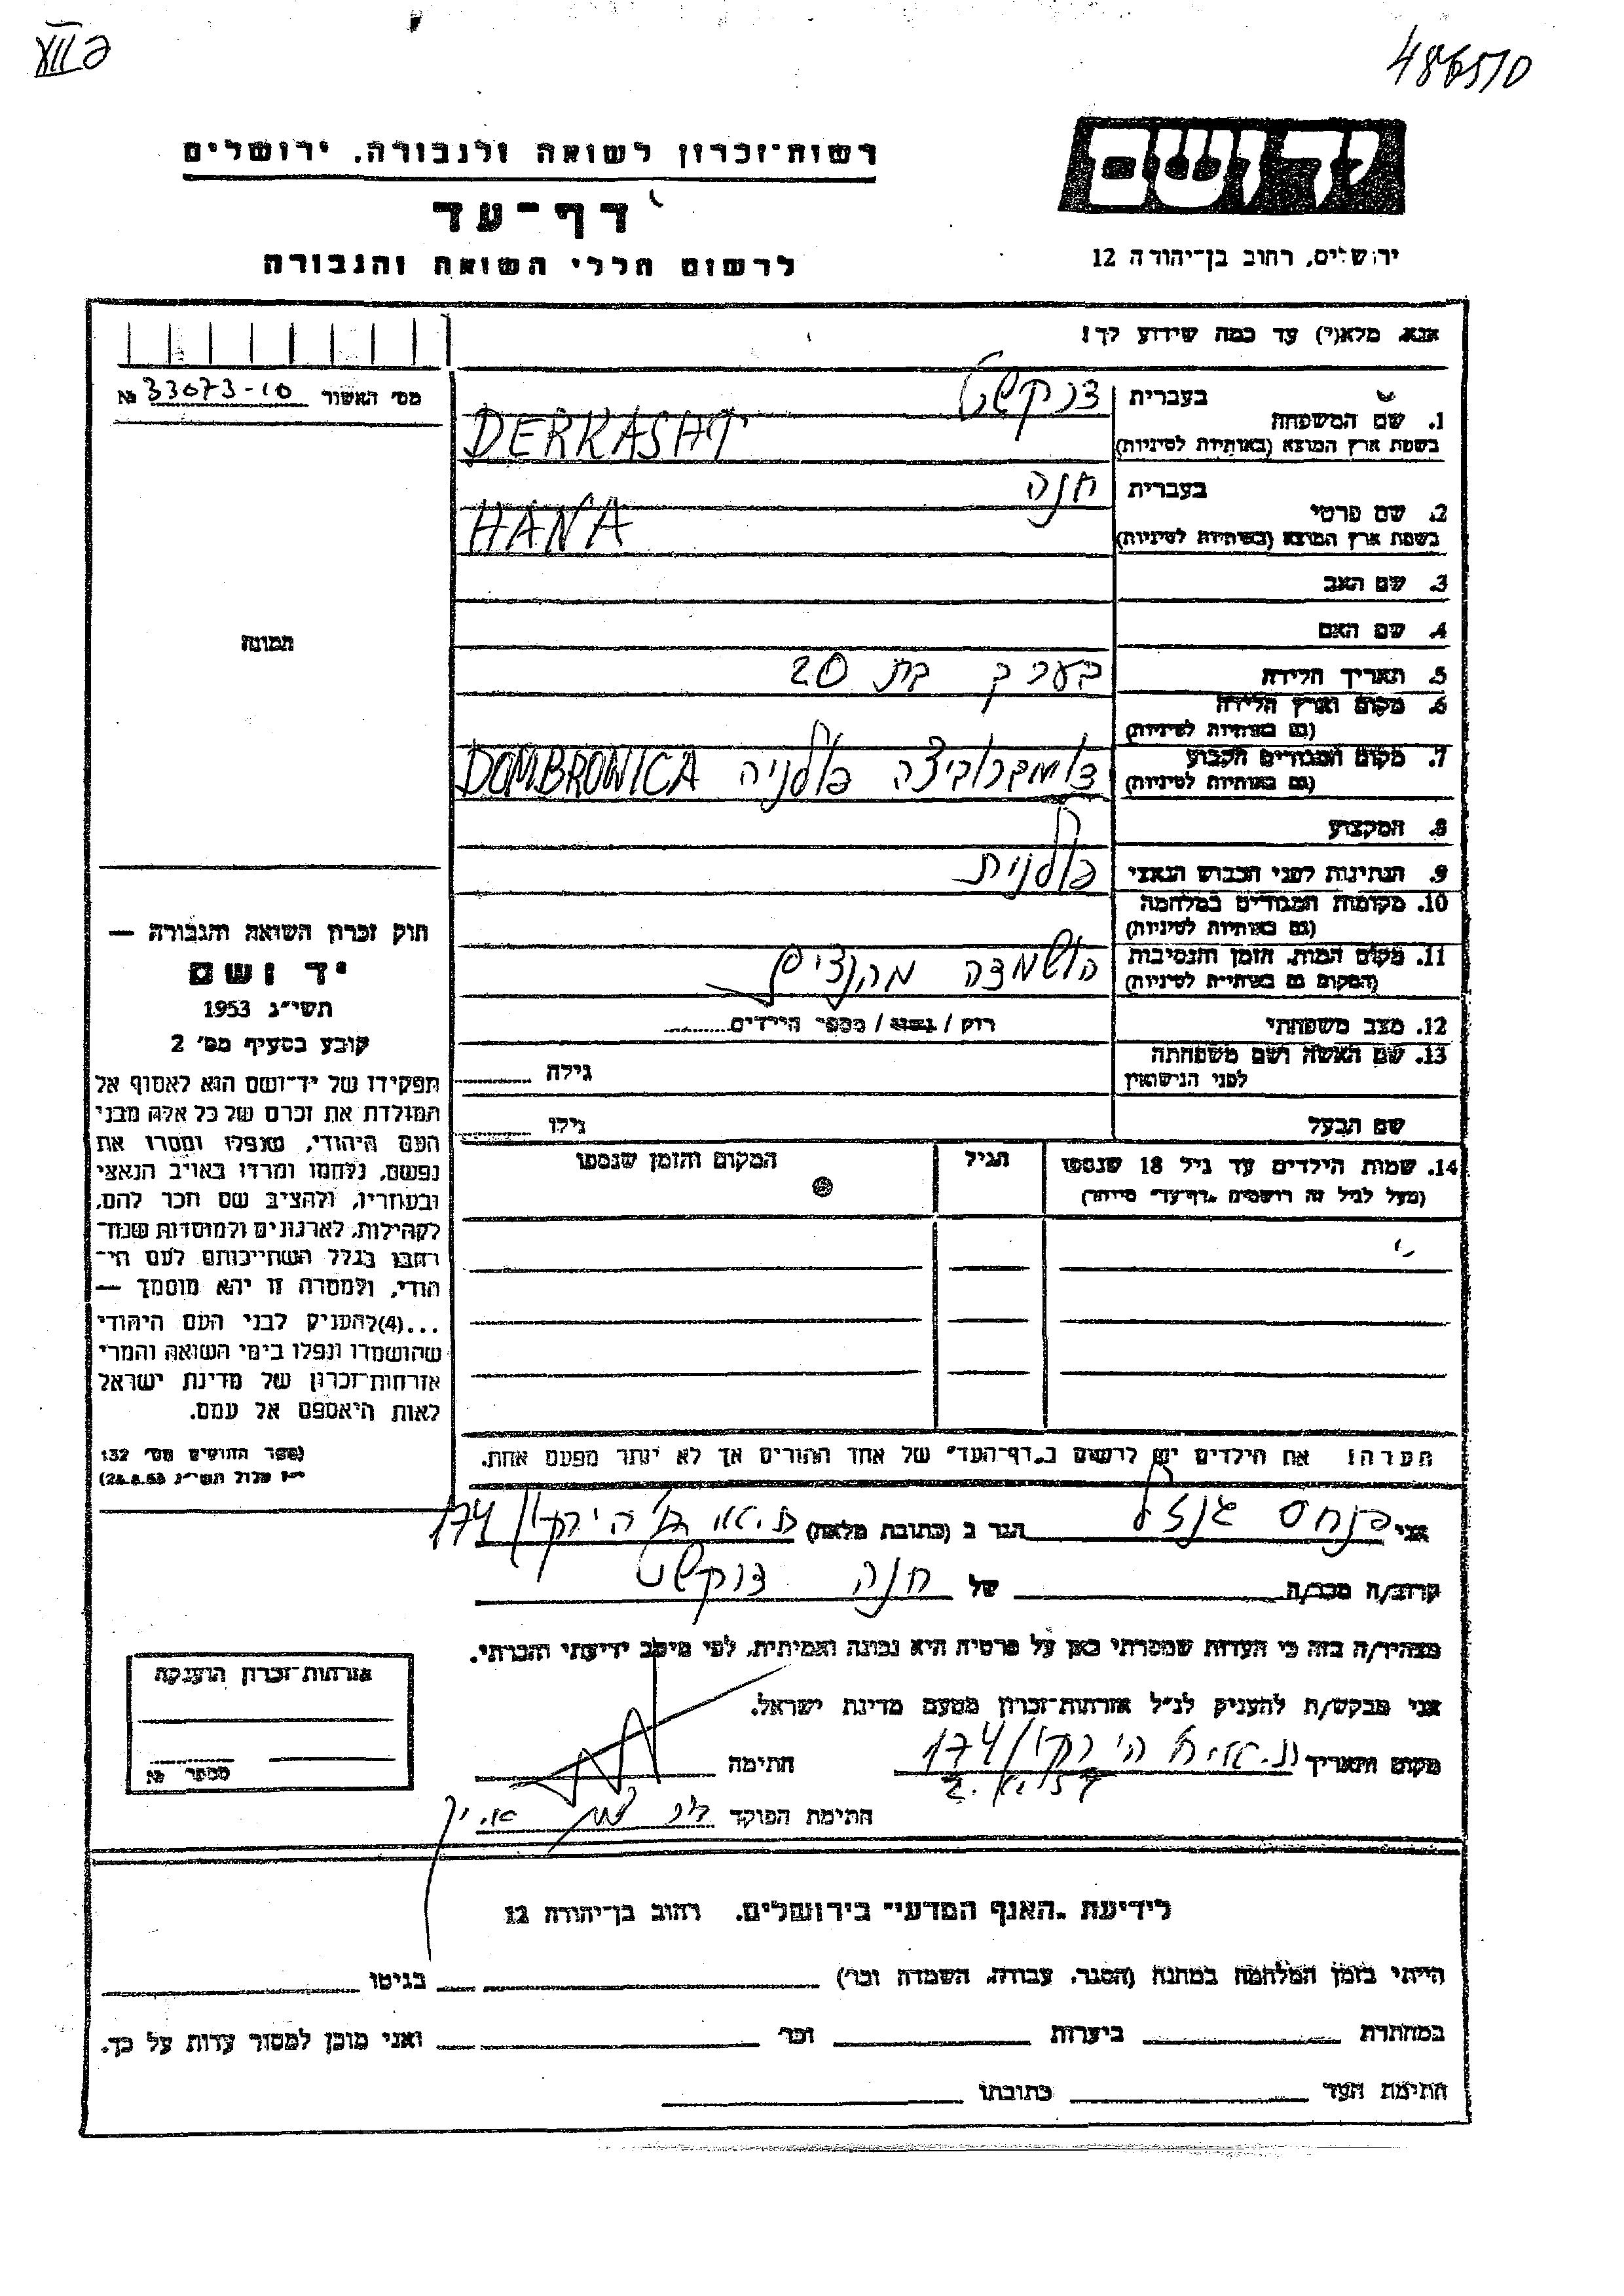 486510
רשות־זכרון לשואה ולגבורה. ירושלים
דף־עד
לרשום חללי השואה והגבורה
ירושלים, רחוב בן־יהודה 12
אנא, מלא(י) עד כמה שידוע לך!
מס׳ האשור 33073-10 №
1. שם המשפחה
בעברית דרקשט
בשפת ארץ המוצא (באותיות לטיניות) DERKASHT
2. שם פרטי
בעברית חנה
בשפת ארץ המוצא (באותיות לטיניות) HANA
3. שם האב
4. שם האם
תמונה
5. תאריך הלידה בערך בת 20
6. מקום וארץ הלידה
(גם באותיות לטיניות)
7. מקום המגורים הקבוע
(גם באותיות לטיניות) דומברוביצה פולניה DOMBROWICA
8. המקצוע
9. הנתינות לפני הכבוש הנאצי פולנית
10. מקומות המגורים במלחמה
(גם באותיות לטיניות)
11. מקום המות, הזמן והנסיבות
(המקום גם באותיות לטיניות) הושמדה מהנצים
12. מצב משפחתי רווק / נשוי / מספר הילדים
13. שם האשה ושם משפחתה
לפני הנישואין גילה
שם הבעל גילו
14. שמות הילדים עד גיל 18 שנספו הגיל המקום והזמן שנספו
(מעל לגיל זה רושמים „דף־עד״ מיוחד)
חוק זכרון השואה והגבורה —
יד ושם
תשי״ג 1953
קובע בסעיף מס׳ 2
תפקידו של יד־ושם הוא לאסוף אל
המולדת את זכרם של כל אלה מבני
העם היהודי, שנפלו ומסרו את
נפשם, נלחמו ומרדו באויב הנאצי
ובעוזריו, ולהציב שם וזכר להם,
לקהילות, לארגונים ולמוסדות שנח־
רבו בגלל השתייכותם לעם הי־
הודי, ולמטרה זו יהא מוסמך —
...(4) להעניק לבני העם היהודי
שהושמדו ונפלו בימי השואה והמרי
אזרחות־זכרון של מדינת ישראל
לאות היאספם אל עמם.
(ספר החוקים מס׳ 132
י״ז אלול תשי״ג 28.8.53)
הערה! את הילדים יש לרשום ב„דף־העד״ של אחד ההורים אך לא יותר מפעם אחת.
אני פנחס הגר ב (כתובת מלאה) ת.א. הירקון 174
קרוב/ה מכר/ה של חנה דרקשט
מצהיר/ה בזה כי העדות שמסרתי כאן על פרטיה היא נכונה ואמיתית, לפי מיטב ידיעתי והכרתי.
אני מבקש/ת להעניק לנ״ל אזרחות־זכרון מטעם מדינת ישראל.
מקום ותאריך הירקון 174 חתימה
חתימת הפוקד
אזרחות־זכרון הוענקה
מספר №
לידיעת „האגף המדעי״ בירושלים, רחוב בן־יהודה 12
הייתי בזמן המלחמה במחנה (הסגר, עבודה, השמדה וכר׳) בגיטו
במחתרת ביערות וכר׳ ואני מוכן למסור עדות על כך.
חתימת העד כתובתו